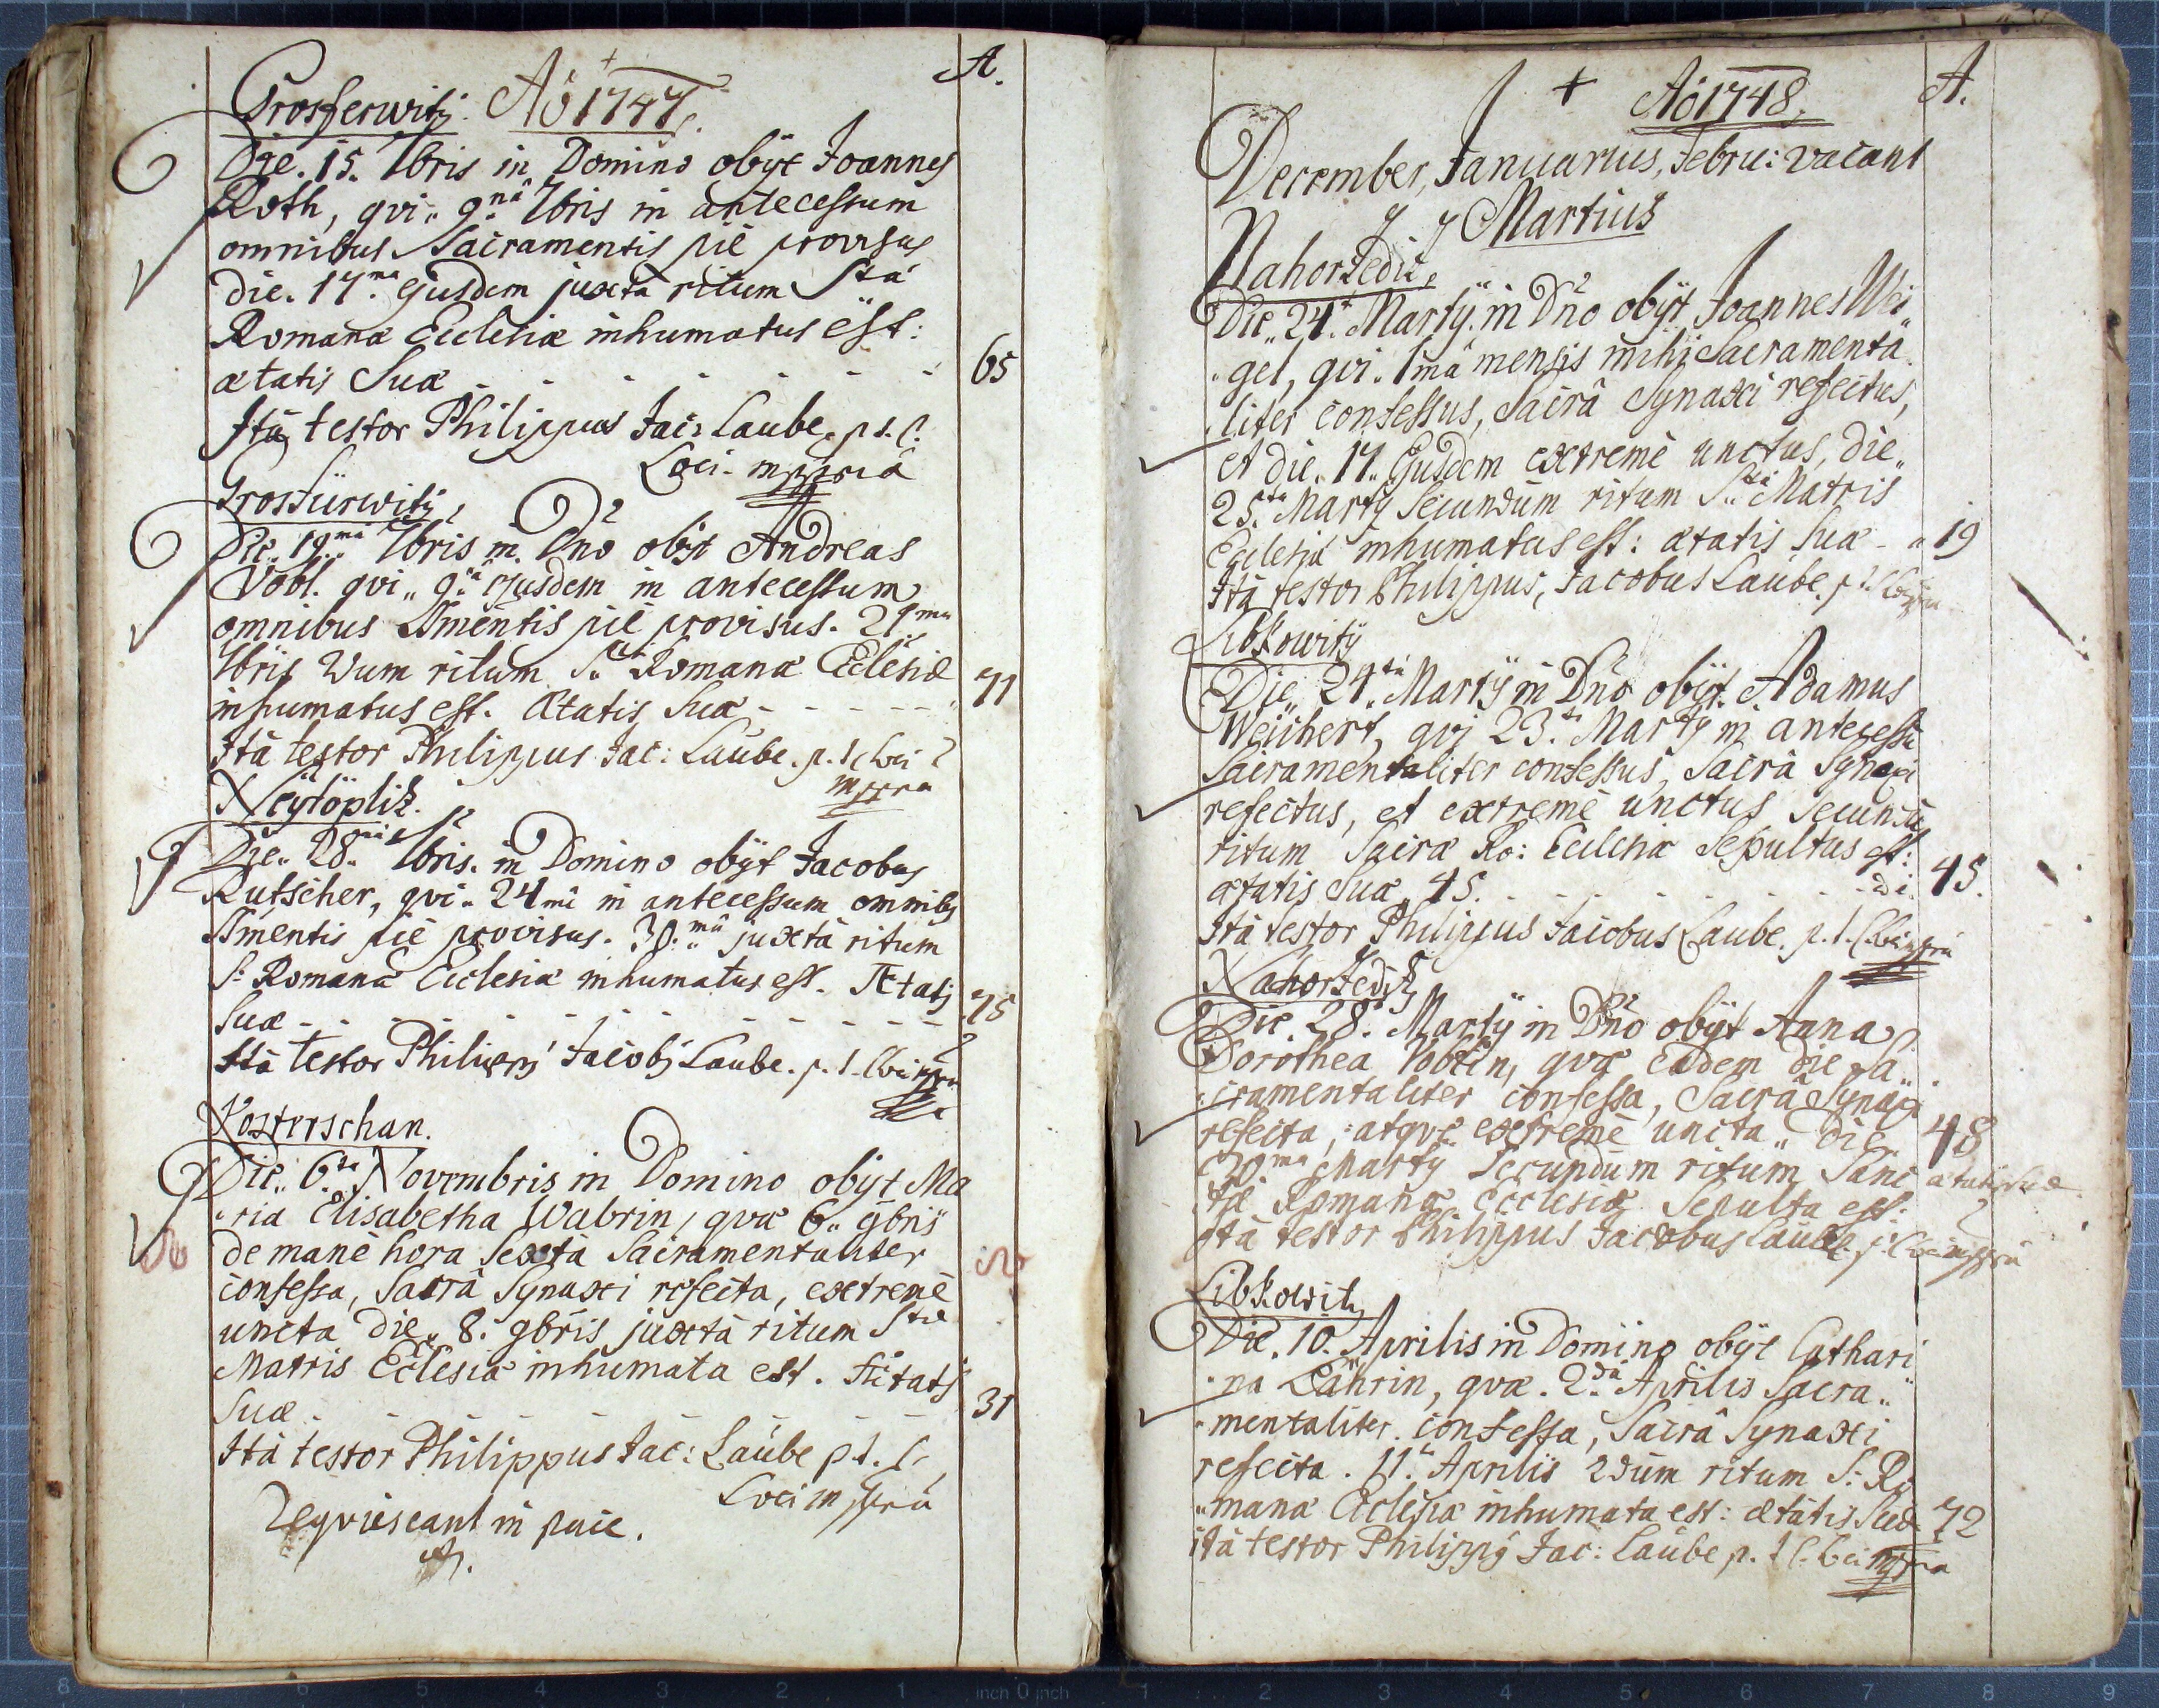 Grosferwitz. Aõ 1747. A.
Die. 15. 7bris in Domino obÿt Joannes
Roth, qvi„ 9.nâ 7bris in antecessum
omnibus Sacramentis piè provisus
die. 17.ma Ejusdem juxta ritum Stæ
Romanæ Ecclesiæ inhumatus est:
ætatis Suæ - - - - - - - 65
Ità testor Philippus Jac: Laube. p. t. C.
Loci. mppriâ
Grosfürwitz,
Die. 19.mâ 7bris in Dño obÿt Andreas
Vobl. qvi„ 9.â ejusdem in antecessum
omnibus SSmentis piè provisus. 21ma
7bris 2dum ritum S. Romanæ Ecclesiæ
inhumatus est. Ætatis Suæ - - - - - 71
Ità testor Philippus Jac: Laube. p. t. C Loci
mppra
Neÿtöplitz.
Die„ 28. 7bris. in Domino obÿt Jacobus
Rutscher, qvi„ 24 mâ in antecessum omnibg
SSmentis piè provisus. 30.mâ juxtà ritum
S: Romanæ Ecclesiæ inhumatus est. Ætatis
Suæ - - - - - - - - - - 75
Ità testor Philippg Jacobg Laube. p. t. C Loci mppra
Kosterschan.
Die„ 6.ta Novembris in Domino obÿt Ma
„ria Elisabetha Wabrin, qvæ 6„ 9bris
de manè hora Sextâ Sacramentaliter
confessa, Sacrâ Synaxi refecta, extremè
uncta die„ 8. 9bris juxtà ritum Stæ
Matris Ecclesiæ inhumata est. Ætatis
Suæ - - - - - - - 31
Ità testor Philippus Jac: Laube p t. C.
Loci mppriâ
Reqviescant in pace.
A.
+ Aõ 1748. A.
December, Januarius, Febru: vacant
Martius
Nahorzedit,
Die„ 24.t Martÿ. in Dño obÿt Joannes Wei„
„gel, qvi. 1mâ mensis mihi Sacramenta„
„liter confessus, Sacrâ Synaxi refectus,
et die„ 17„ Ejusdem extremè unctus, die„
25.ta Martÿ Secundum ritum S.tæ Matris
Ecclesiæ inhumatus est: ætatis suæ - „ 19
Ità testor Philippus, Jacobus Laube. p. t. C Loci mppria
Libkowitz
Die„ 24.tâ Martÿ in Dño obÿt. Adamus
Weichert, qvi 23.tâ Martÿ in antecessu
Sacramentaliter confessus, Sacrâ Synaxi
refectus, et extremè unctus Secundu
ritum Sacræ Ro: Ecclesiæ Sepultus est:
ætatis Suæ„ 45. - - - - - - - 45.
Ità testor Philippus Jacobus Laube. p. t. C. Loci mppriâ
Nahorzeditz
Die. 28. Martÿ in Dño obÿt Anna
Dorothea Voblin, qvæ eâdem die Sa„
„cramentaliter confessa, Sacrâ Synaxi
refecta, atqve extremè uncta„ die
30ma Martÿ Secundum ritum Sanc 48 ætatis suæ
tæ Romanæ Ecclesiæ Sepulta est.
Ità testor Philippus Jacobus Laube. p. t. C Loci mppriâ
Libkowitz
Die. 10. Aprilis in Domino obÿt Cathari
„na Lahrin, qvæ. 2.dâ Aprilis Sacra„
„mentaliter. confessa, Sacrâ Synaxi
refecta. 11.â Aprilis 2dum ritum S: Ro
„manæ Ecclesiæ inhumata est: ætatis Suæ 72
ità testor Philippg Jac: Laube p. t C. Loci mppria